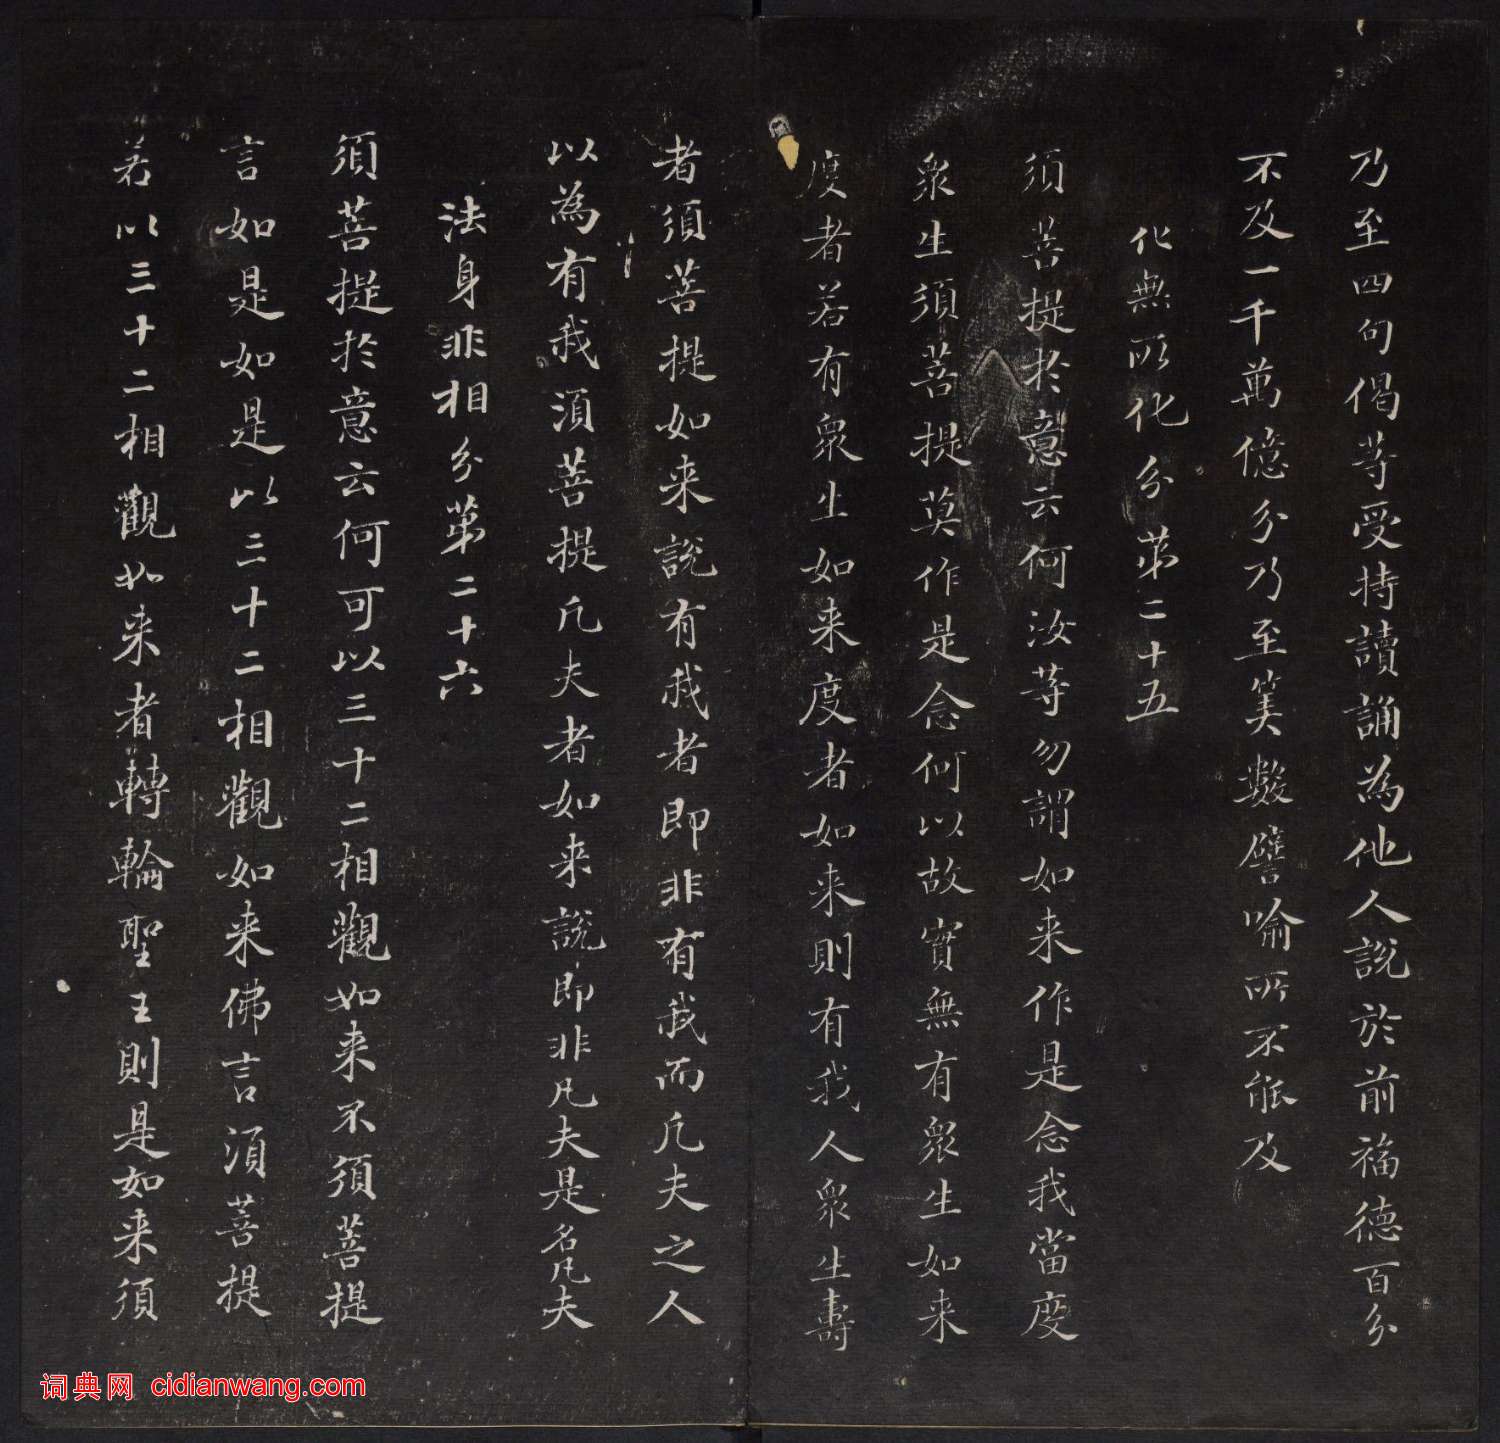 乃至四句偈等受持讀誦為他人說於前福德百分
不及一千萬億分乃至筭數譬喻所不能及
化無所化分第二十五
須菩提於意云何汝等勿謂如来作是念我當度
眾生須菩提莫作是念何以故實無有眾生如来
度者若有眾生如来度者如来則有我人眾生壽
者須菩提如来說有我者即非有我而凡夫之人
以為有我須菩提凡夫者如来說即非凡夫是名凡夫
法身非相分第二十六
須菩提於意云何可以三十二相觀如来不須菩提
言如是如是以三十二相觀如来佛言須菩提
若以三十二相觀如来者轉輪聖王則是如来須
词典网 cidianwang.com